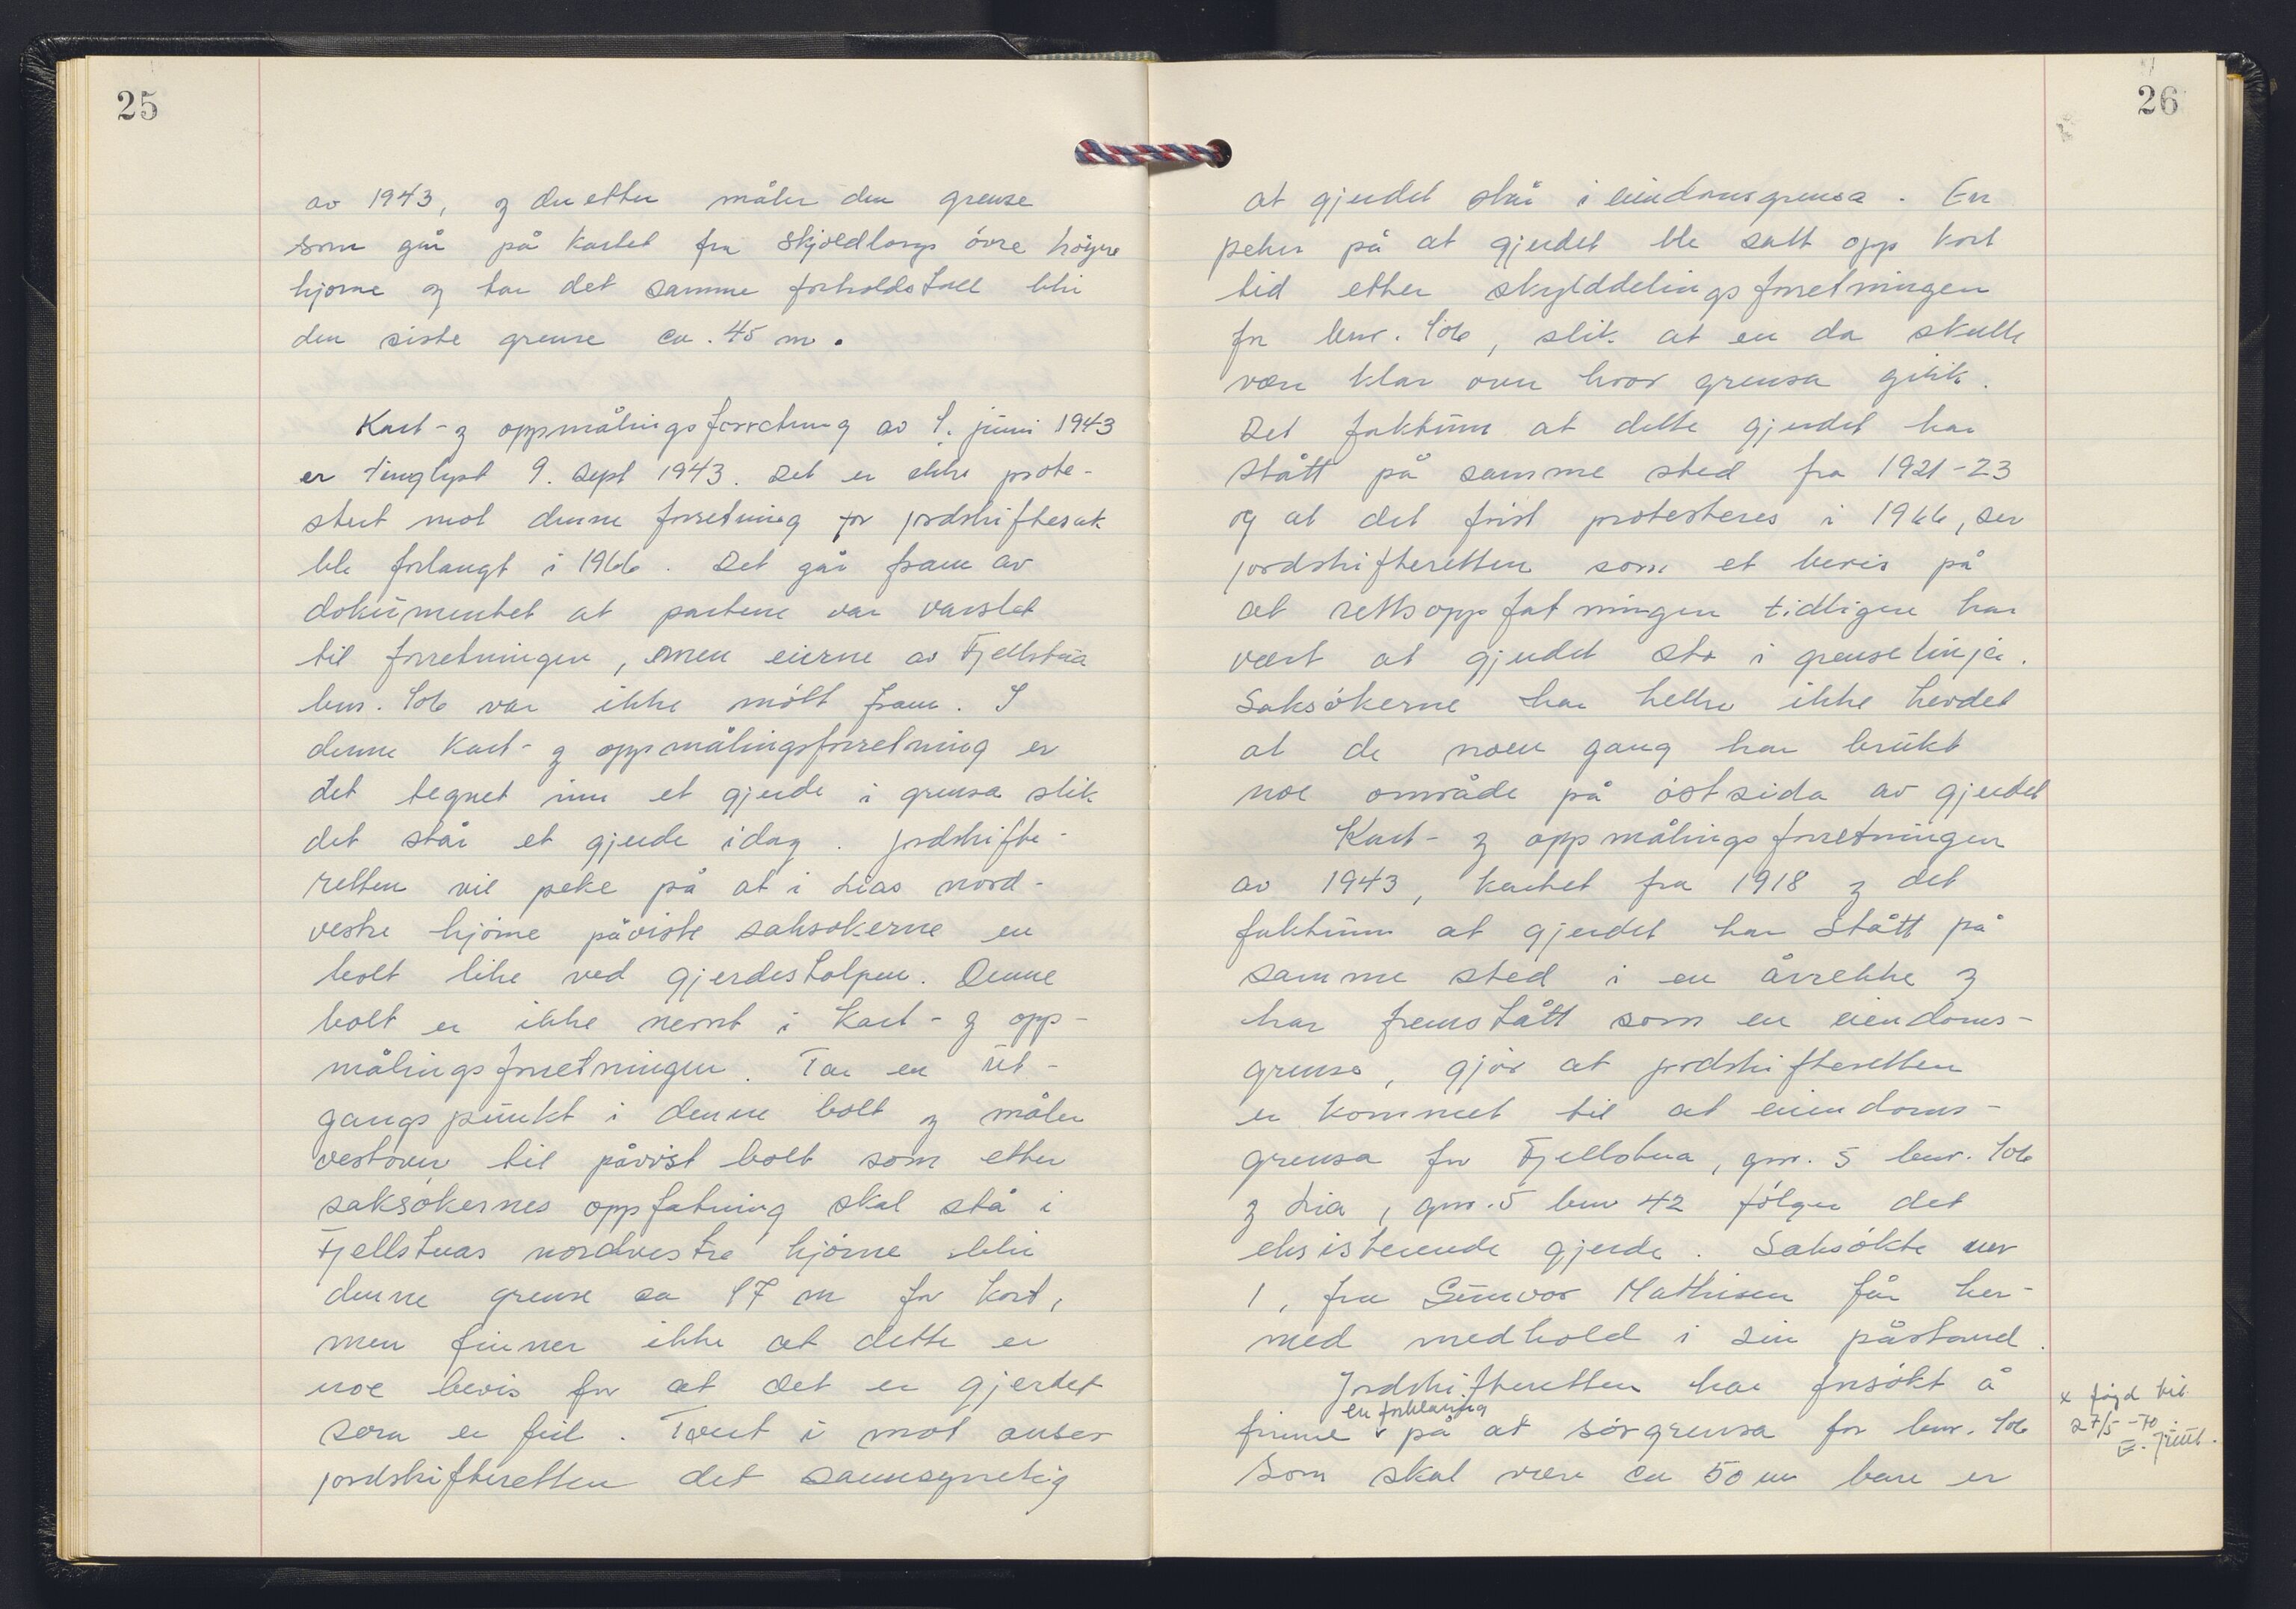 25
av 1943, og deretter måler den grense
som går på kartet fra Skjoldborgs övre höyre
hjörne og tar det samme forholdstall blir
den siste grense ca. 45 m.
Kart- og oppmålingsforretning av 1. juni 1943
er tinglyst 9. sept 1943. Det er ikke prote-
stert mot denne forretning før jordskiftesak
ble forlangt i 1966. Det går fram av
dokumentet at partene var varslet
til forretningen, men eierne av Fjellstua
bnr. 106 var ikke mött fram. I
denne kart- og oppmålingsforretning er
det tegnet inn et gjerde i grensa slik
det står et gjerde idag. Jordskifte-
retten vil peke på at i Lias nord-
vestre hjörne påviste saksökerne en
bolt like ved gjerdestolpen. Denne
bolt er ikke nevnt i kart- og opp-
målingsforretningen. Tar en ut-
gangspunkt i denne bolt og måler
vestover til påvist bolt som etter
saksökernes oppfatning skal stå i
Fjellstuas nordvestre hjörne blir
denne grense ca 17 m for kort,
men finner ikke at dette er
noe bevis for at det er gjerdet
som er feil. Tvert i mot anser
jordskifteretten det sannsynelig
26
at gjerdet står i eiendomsgrensa. En
peker på at gjerdet ble satt opp kort
tid etter skylddelingsforretningen
for bnr. 106, slik at en da skulle
være klar over hvor grensa gikk.
Det faktum at dette gjerdet har
stått på samme sted fra 1921-23
og at det först protesteres i 1966, ser
jordskifteretten som et bevis på
at rettsoppfatningen tidligere har
vært at gjerdet sto i grenselinja.
Saksökerne har heller ikke hevdet
at de noen gang har brukt
noe område på östsida av gjerdet
Kart- og oppmålingsforretningen
av 1943, kartet fra 1918 og det
faktum at gjerdet har stått på
samme sted i en årrekke og
har fremstått som en eiendoms-
grense, gjör at jordskifteretten
er kommet til at eiendoms-
grensa for Fjellstua, gnr. 5 bnr. 106
og Lia, gnr. 5 bnr 42 fölger det
eksisterende gjerde. Saksökte nr
1, fru Gunvor Mathisen får her-
med medhold i sin påstand.
Jordskifteretten har forsökt å
en forklaring
finne v på at sörgrensa for bnr. 106
som skal være ca 50 m bare er
x föyd til
27/5 -70